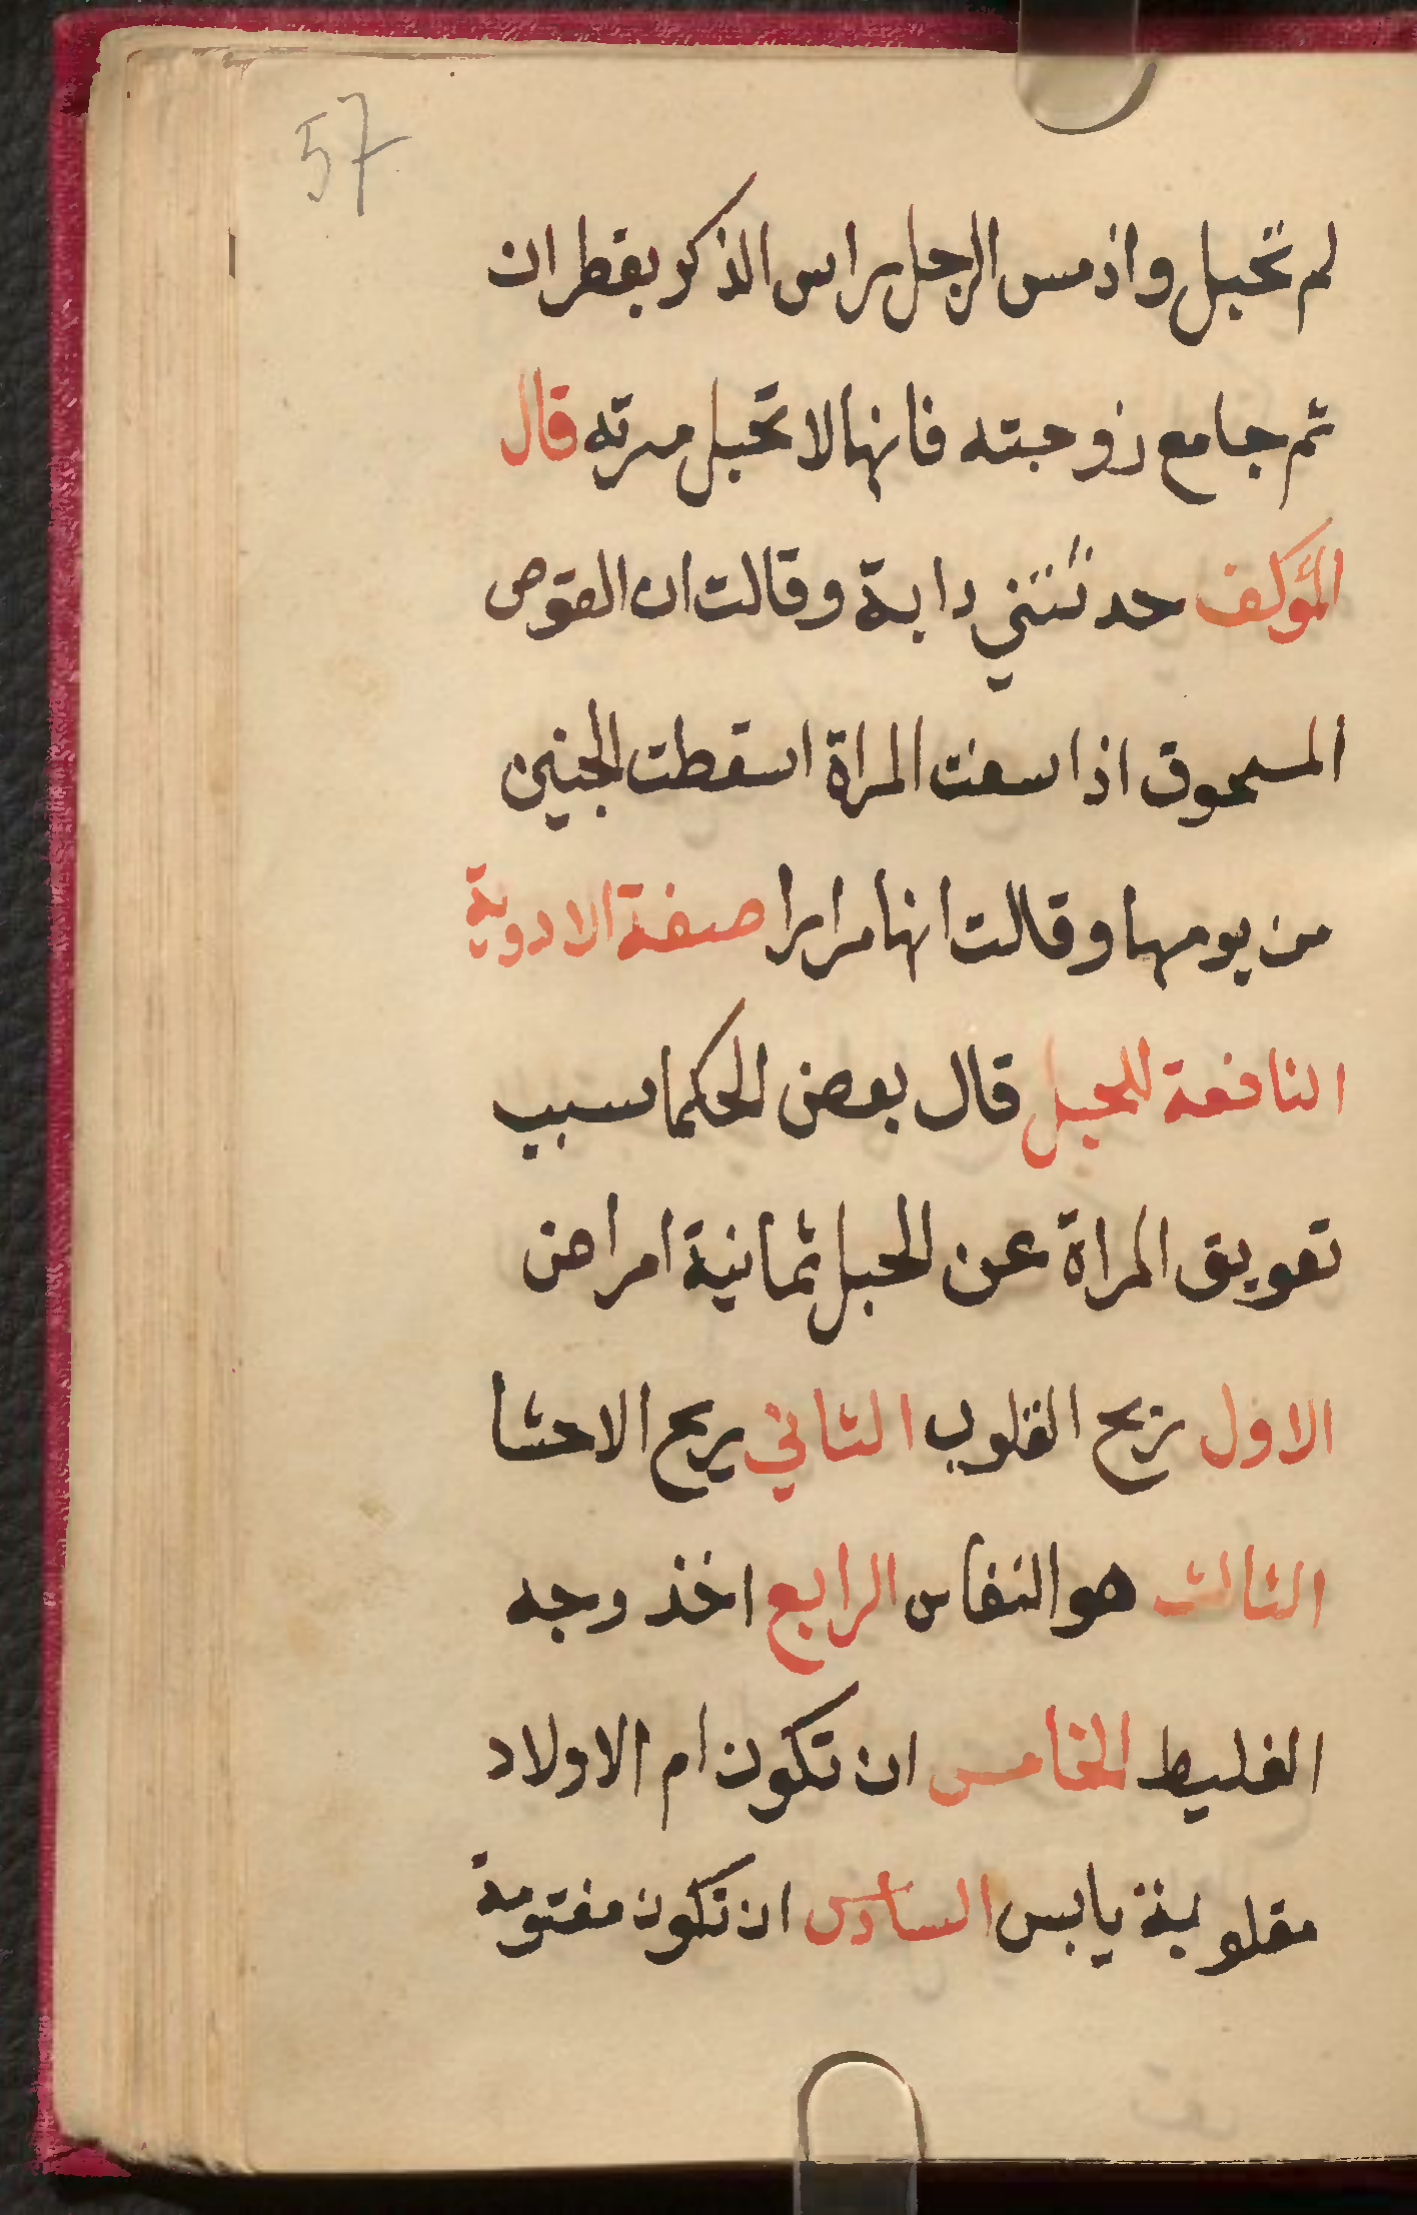 57
لم تحبل واذ مس الرجل براس الذكر بقطران
ثم جامع زوجته فانها لا تحبل مرته قال
المؤلف حدثتني دابة وقالت ان القوص
المسحوق اذا سعت المراة اسقطت الجنين
من يومها وقالت انها مرارا صفة الادوية
النافعة للحبل قال بعض الحكما سبب
تعويق المراة عن الحبل ثمانية امراض
الاول ريح القلوب الثاني ريح الاحشا
الثالث هو النفاس الرابع اخذ وجه
الغليط الخامس ان تكون ام الاولاد
مقلوبة يابس السادس ان تكون مغتومة